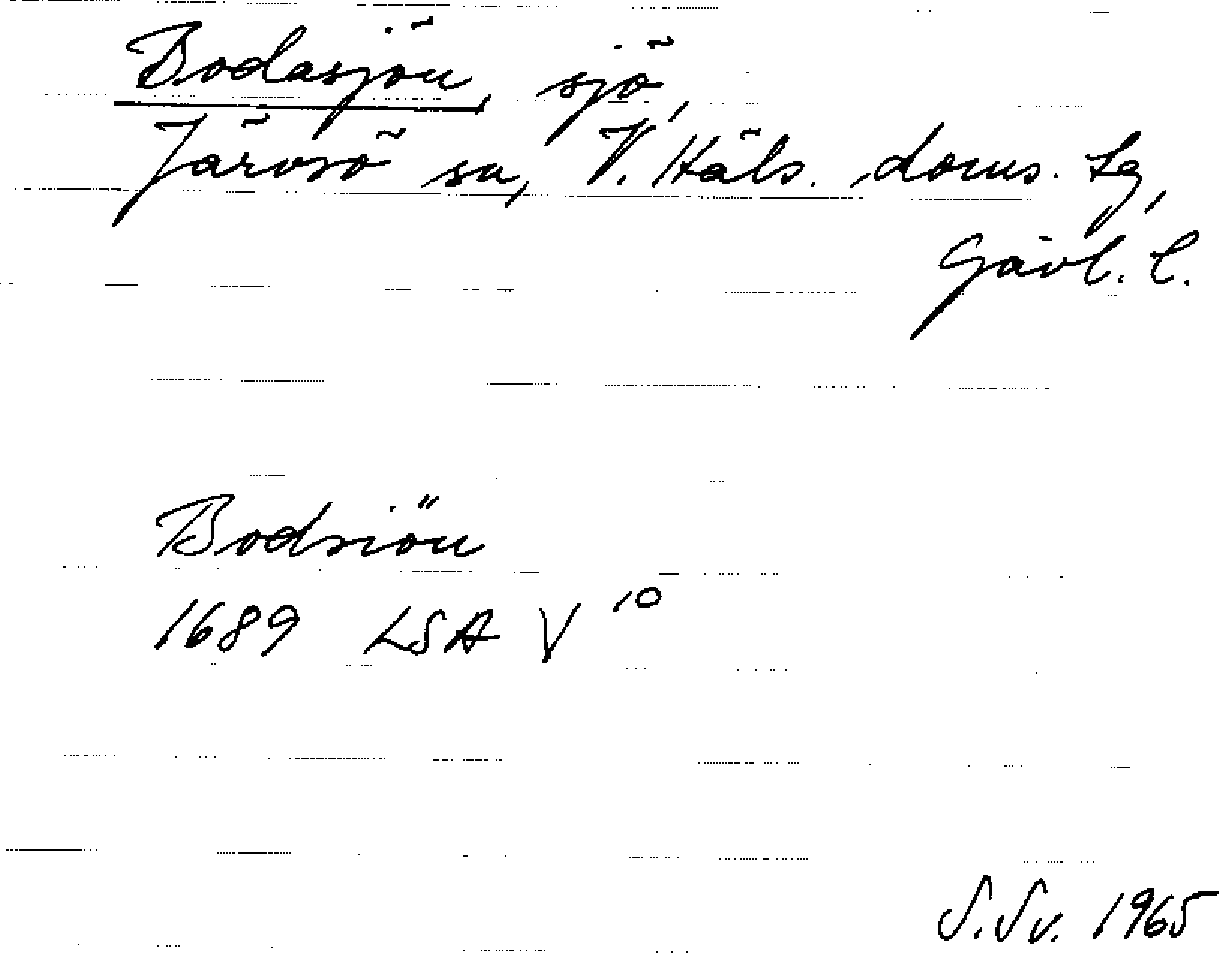 Bodasjön, sjö,
Järvsö sn, V. Häls. doms. tg,
Gävl. l.
Bodsiön
1689 LSA V 10
S. Sv. 1965